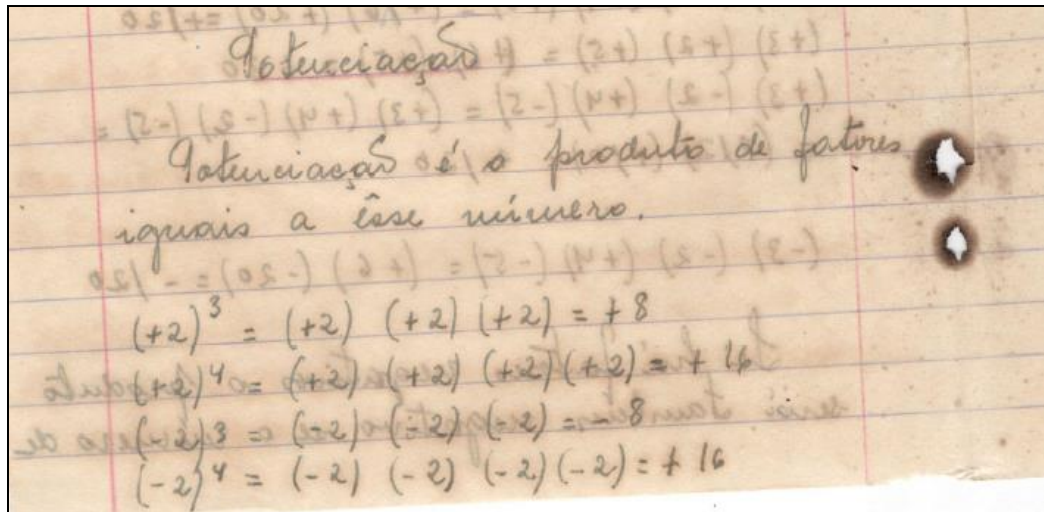 Potenciação
Potenciação é o produto de fatores
iguais a êsse número.
(+2)³ = (+2) (+2) (+2) = + 8
(+2)⁴ = (+2) (+2) (+2) (+2) = + 16
(-2)3 = (-2) (-2) (-2) = - 8
(-2)⁴ = (-2) (-2) (-2) (-2) = + 16